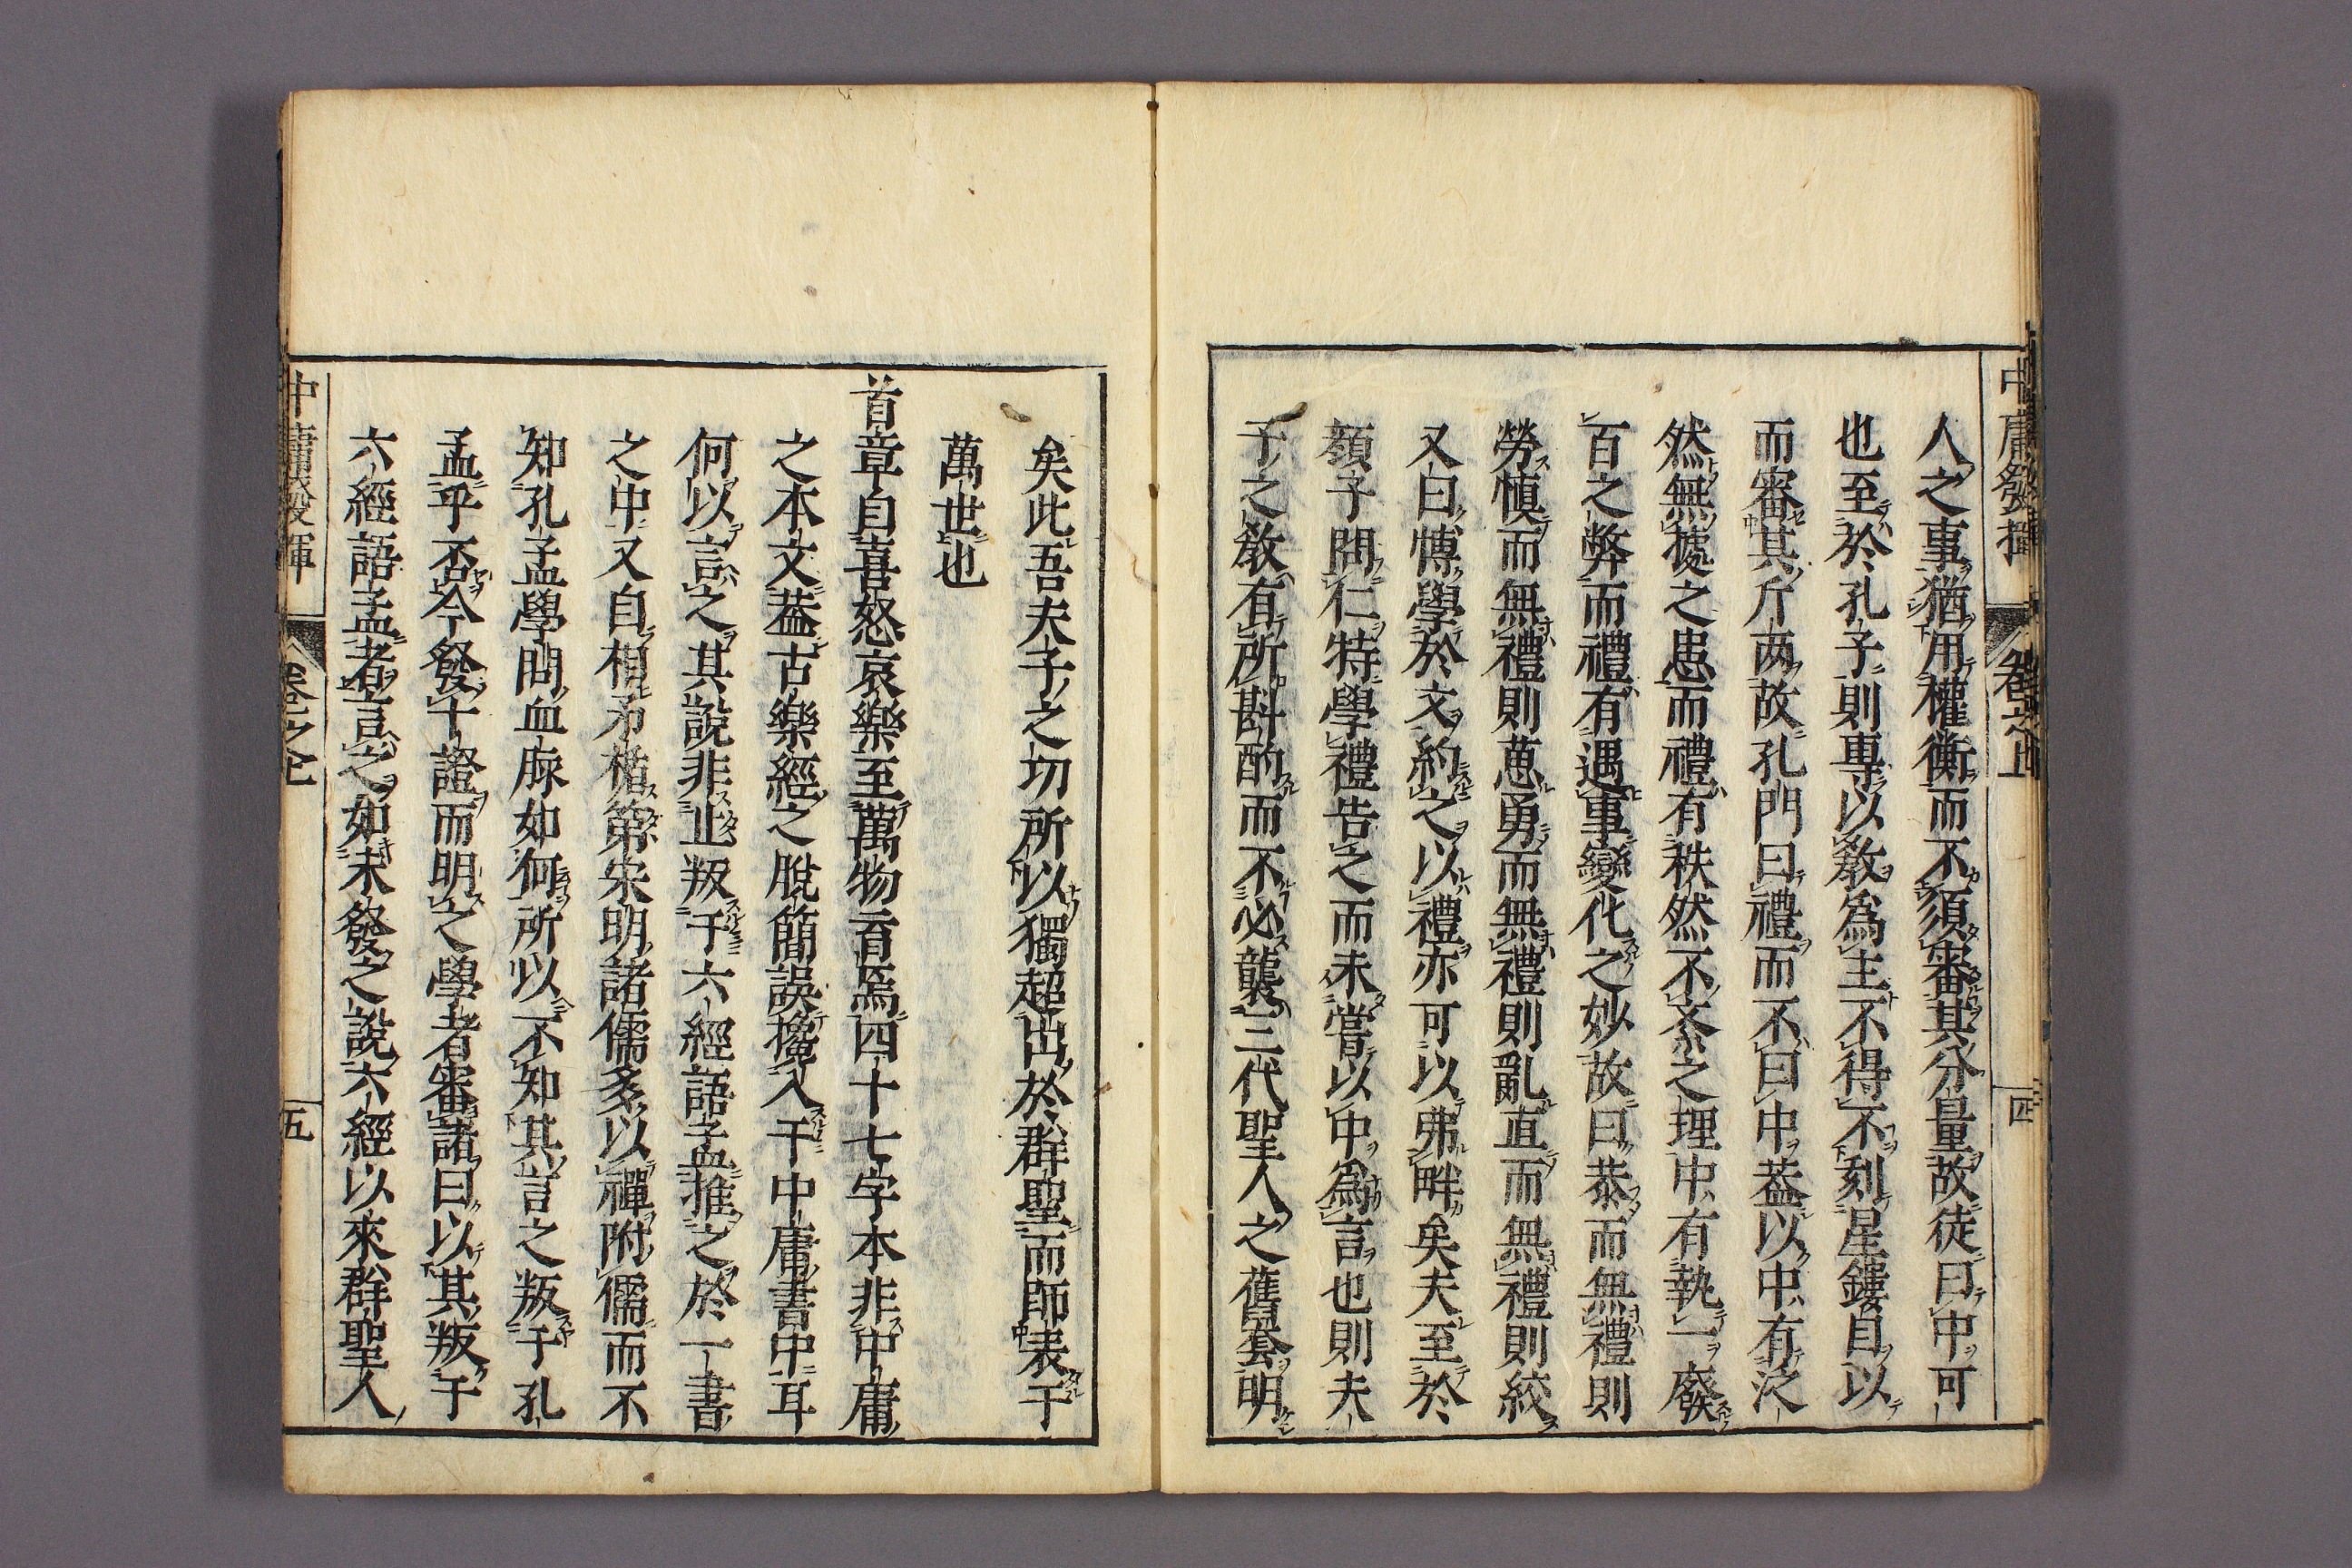 中庸發揮 卷之上 四
人之事猶用權衡而不須審其分量故徒曰中可
也至於孔子則專以敎爲主不得不刻星鏤目以
而審其斤两故孔門曰禮而不曰中葢以中有泛
然無據之患而禮有秩然不紊之理中有執一廢
百之弊而禮有遇事變化之妙故曰恭而無禮則
勞愼而無禮則葸勇而無禮則亂直而無禮則絞
又曰博學於文約之以禮亦可以弗畔矣夫至於
顏子問仁特學禮告之而未嘗以中爲言也則夫
子之敎有所斟酌而不必襲三代聖人之舊套明
矣此吾夫子之切所以獨超出於群聖而師表于
萬世也
首章自喜怒哀樂至萬物育焉四十七字本非中庸
之本文葢古樂經之脫簡誤攙入于中庸書中耳
何以言之其說非止叛于六經語孟推之於一書
之中又自相矛楯第宋明諸儒多以禪附儒而不
知孔孟學問血脉如何所以不知其言之叛于孔
孟乎否今發十證而明之學者審諸曰以其叛于
六經語孟者言之如未發之說六經以來群聖人
中庸發揮 卷之上 五